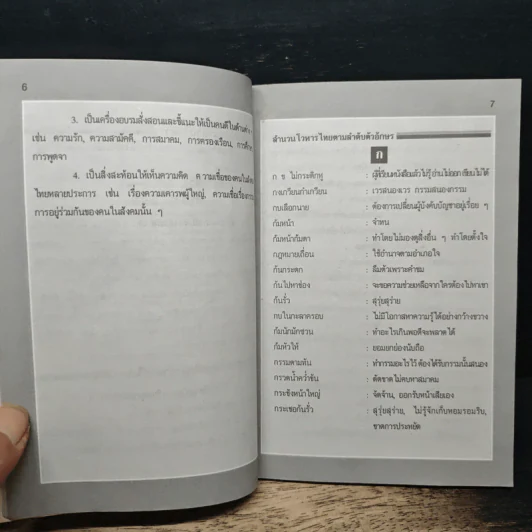 6
3. เป็นเครื่องอบรมสั่งสอนและชี้แนะให้เป็นคนดีในด้านต่าง ๆ
เช่น ความรัก, ความสามัคคี, การสมาคม, การครองเรือน, การศึกษา
การพูดจา
4. เป็นสิ่งสะท้อนให้เห็นความคิด ความเชื่อของคนใน
ไทยหลายประการ เช่น เรื่องความเคารพผู้ใหญ่, ความเชื่อเรื่อง
การอยู่ร่วมกันของคนในสังคมนั้น ๆ
7
สำนวนโวหารไทยตามลำดับตัวอักษร
ก
ก ข ไม่กระดิกหู : ผู้ที่เรียนหนังสือแล้วไม่รู้ อ่านไม่ออก เขียนไม่ได้
กงเกวียนกำเกวียน : เวรสนองเวร กรรมสนองกรรม
กบเลือกนาย : ต้องการเปลี่ยนผู้บังคับบัญชาอยู่เรื่อย ๆ
ก้มหน้า : จำทน
ก้มหน้าก้มตา : ทำโดยไม่มองดูสิ่งอื่น ๆ ทำโดยตั้งใจ
กฎหมายเถื่อน : ใช้อำนาจตามอำเภอใจ
ก้นกระดก : ลืมตัวเพราะคำชม
: จะขอความช่วยเหลือจากใครต้องไปหาเขา
ก้นรั่ว : สุรุ่ยสุร่าย
กบในกะลาครอบ : ไม่มีโอกาสหาความรู้ได้อย่างกว้างขวาง
ก้มนักมักชวน : ทำอะไรเกินพอดีจะพลาดได้
ก้มหัวให้ : ยอมยกย่องนับถือ
กรรมตามทัน : ทำกรรมอะไรไว้ ต้องได้รับกรรมนั้นสนอง
กรวดน้ำคว่ำขัน : ตัดขาด ไม่คบหาสมาคม
กระชังหน้าใหญ่ : จัดจ้าน, ออกรับหน้าเสียเอง
กระเชอก้นรั่ว : สุรุ่ยสุร่าย, ไม่รู้จักเก็บหอมรอมริบ,
ขาดการประหยัด